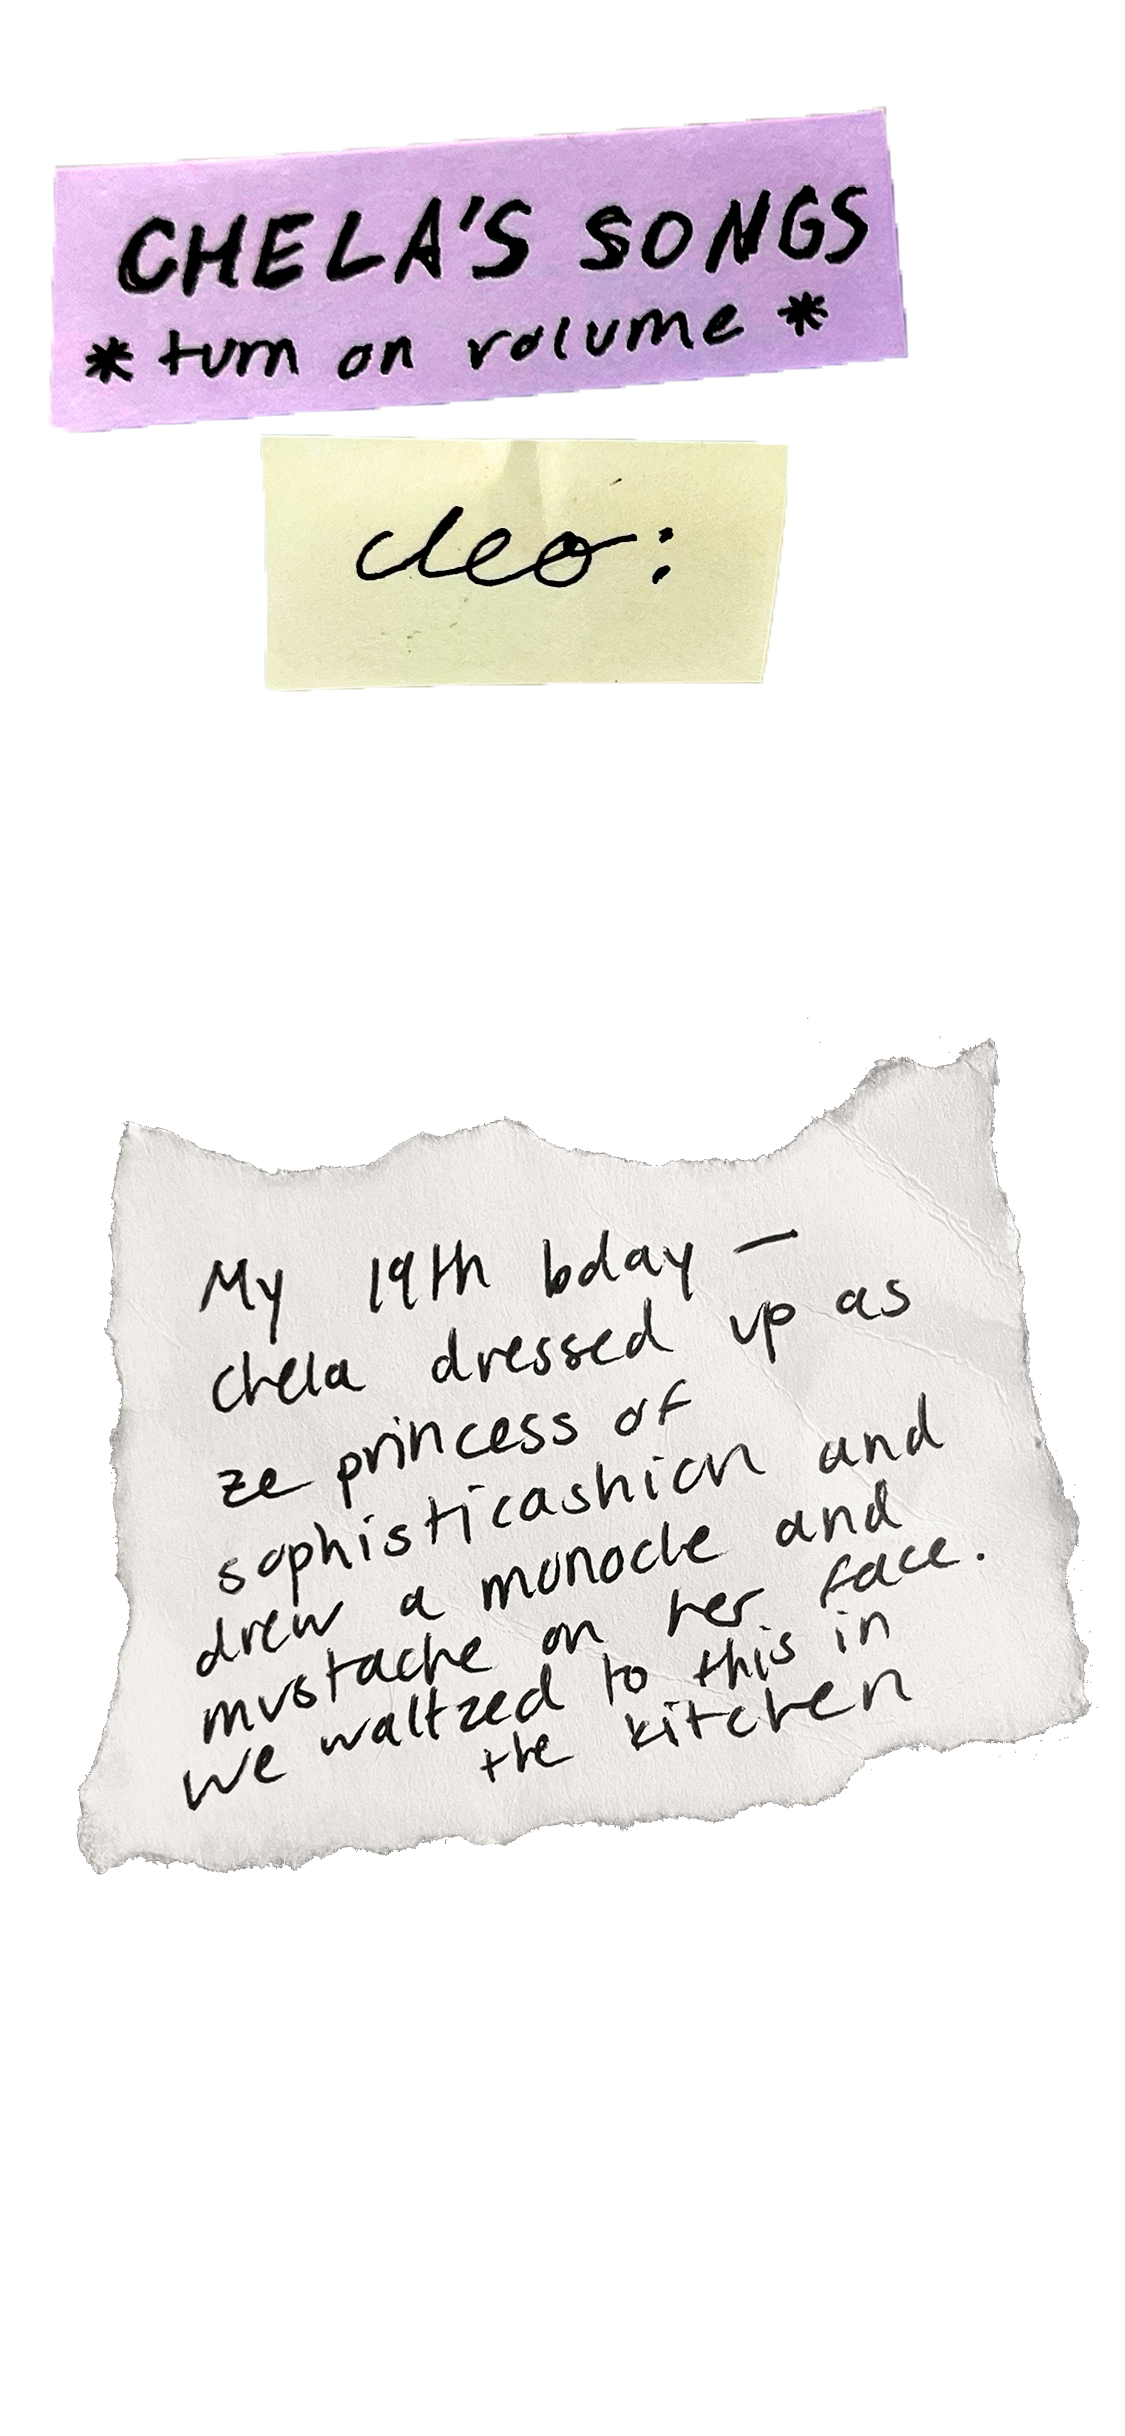 CHELA'S SONGS
* turn on volume *
cleo:
My 19th bday —
chela dressed up as
ze princess of
sophisticashion and
drew a monocle and
mustache on her face.
we waltzed to this in
the kitchen